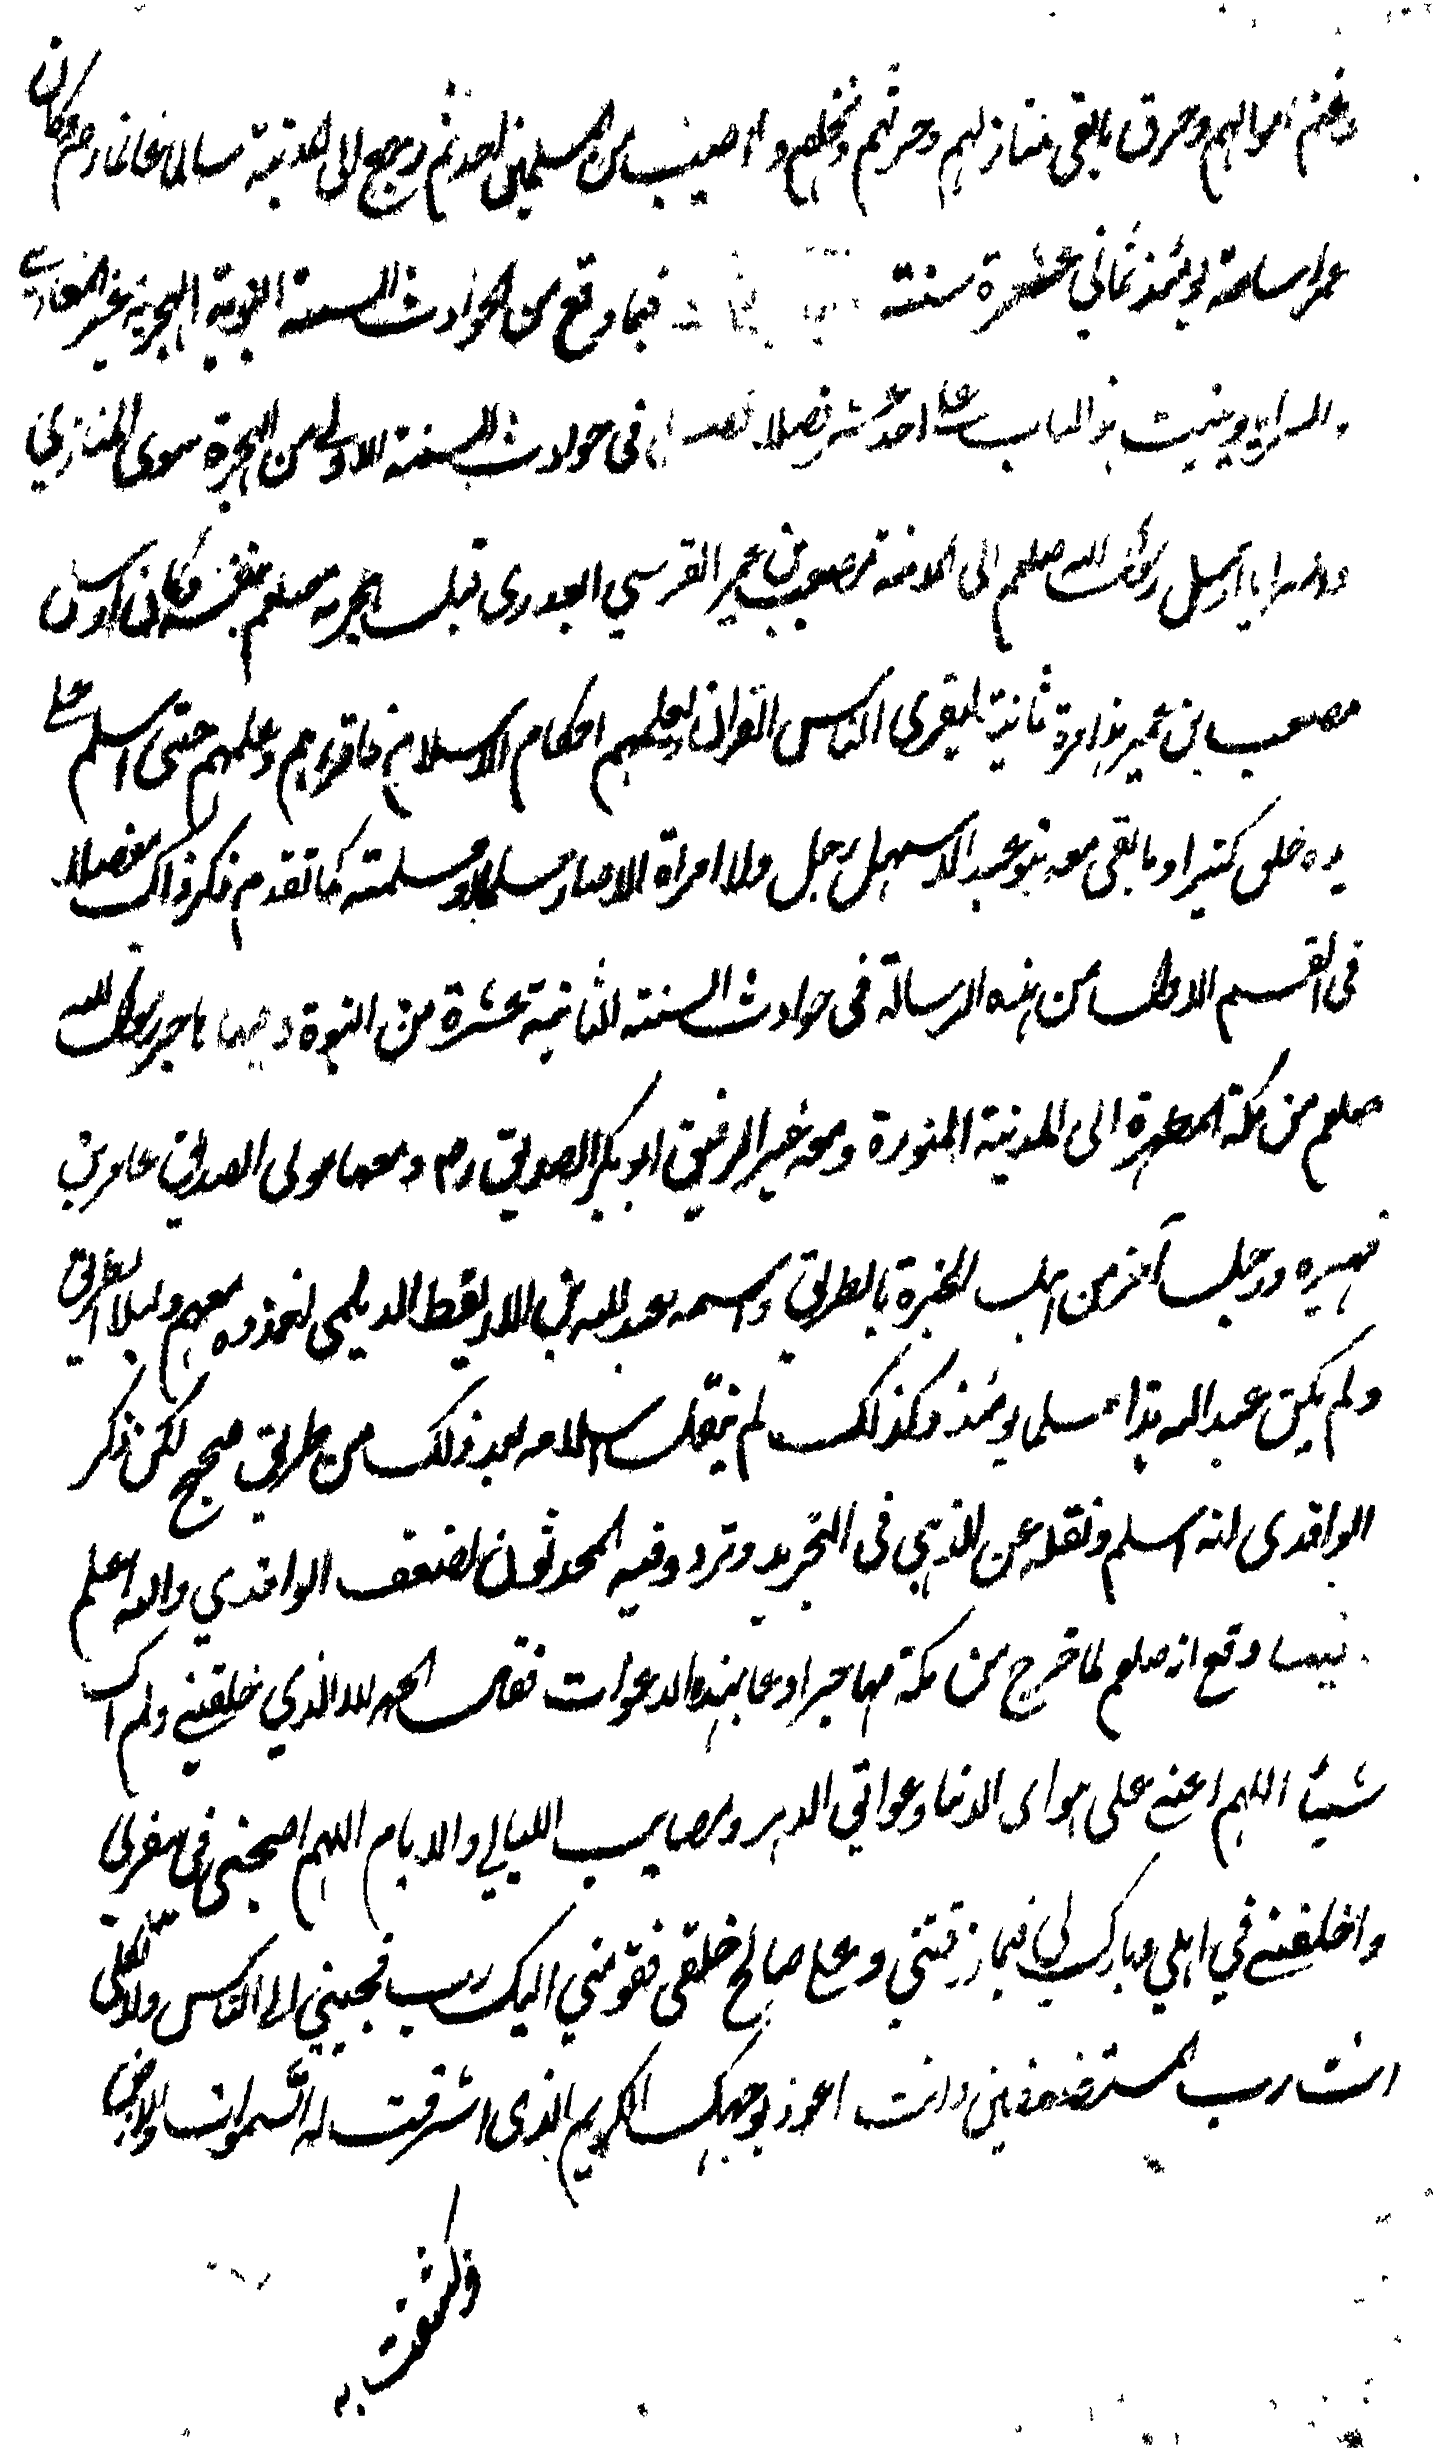 وغنم اموالهم وحرق ما بقى منازلهم وحرثهم ونخلهم ولم يصب من المسلمين احد ثم رجع الى المدينة سالما غانما وكان
عمر اسامة يومئذ ثماني عشرة سنة فيما وقع من الحوادث السنة النبوية الهجرية غير المغازي
والسرايا وبنيت هذا الباب على احد عشر فصلا فصل في حوادث السنة الاولى من الهجرة سوى المغازي
والسرايا ارسل رسول الله صلعم الى المدينة مصعب بن عمير القرشي العبدري قبل هجرته صلعم بنفسه وكان ارسل
مصعب بن عمير هذا مرة ثانية ليقرى الناس القرآن ويعلمهم احكام الاسلام فاقرأهم وعلمهم حتى اسلم على
يده خلق كثير او ما بقى معه بنو عبد الاسهل رجل ولا امراة الا صار مسلما او مسلمة كما تقدم ذكر ذلك مفصلا
في القسم الاول من هذه الرسالة في حوادث السنة الثانية عشرة من النبوة وفيها هاجر رسول الله
صلعم من مكة المطهرة الى المدينة المنورة ومعه خير الرفيق ابو بكر الصديق رض ومعهما مولى الصديق عامر بن
فهيرة ورجل آخر من اهل الخبرة بالطريق واسمه عبد الله بن الاريقط الديلمي اتخذوه معهم دليلا الى الطريق
ولم يكن عبد الله هذا مسلما يومئذ وكذلك لم ينقل اسلامه بعد ذلك من طريق صحيح لكن ذكر
الواقدى انه اسلم ونقله عن الذهبي في التجريد وتردد فيه المحدثون لضعف الواقدي والله اعلم
فيما وقع انه صلعم لما خرج من مكة مهاجرا دعا بهذه الدعوات فقال الحمد لله الذي خلقني ولم اك
شيئا اللهم اعني على هوال الدنيا وعوائق الدهر ومصايب الليالي والايام اللهم اصحبنى في سفرى
واخلفني في اهلي وبارك لي فيما رزقتني وعلى صالح خلقى فقومني اليك رب فحببني الى الناس ولا تكلني
انت رب المستضعفين وانت اعوذ بوجهك الكريم الذى اشرقت له السموات والارض
وكشفت به